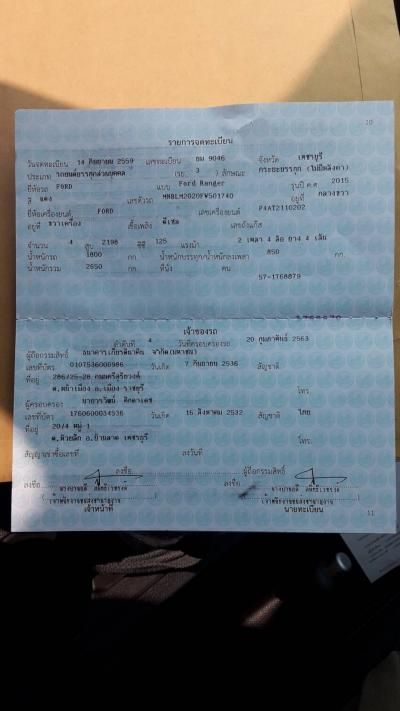 10
รายการจดทะเบียน
วันจดทะเบียน 14 กันยายน 2559 เลขทะเบียน ยม 9046 จังหวัด เพชรบุรี
ประเภท รถยนต์บรรทุกส่วนบุคคล (รย. 3 ) ลักษณะ กระบะบรรทุก (ไม่มีหลังคา)
ยี่ห้อรถ FORD แบบ Ford Ranger รุ่นปี ค.ศ 2015
สี แดง เลขตัวรถ MNBLM2020FW501740 อยู่ที่ กลางขวา
ยี่ห้อเครื่องยนต์ FORD เลขเครื่องยนต์ P4AT2110202
อยู่ที่ ขวาเครื่อง เชื้อเพลิง ดีเซล เลขถังแก๊ส
จำนวน 4 สูบ 2198 ซีซี 125 แรงม้า 2 เพลา 4 ล้อ ยาง 4 เส้น
น้ำหนักรถ 1800 กก. น้ำหนักบรรทุก/น้ำหนักลงเพลา 850 กก.
น้ำหนักรวม 2650 กก. ที่นั่ง คน
57-1768879
เจ้าของรถ
ลำดับที่ 4 วันที่ครอบครองรถ 20 กุมภาพันธ์ 2563
ผู้ถือกรรมสิทธิ์ ธนาคารเกียรตินาคิน จำกัด(มหาชน)
เลขที่บัตร 0107536000986 วันเกิด 7 กันยายน 2536 สัญชาติ
ที่อยู่ 286/25-28 ถนนศรีสุริยวงศ์
ต.หน้าเมือง อ.เมือง ราชบุรี โทร.
ผู้ครอบครอง
เลขที่บัตร 1760600034536 วันเกิด 15 สิงหาคม 2532 สัญชาติ ไทย
ที่อยู่ 20/4 หมู่ 1
อ.บ้านลาด เพชรบุรี โทร.
สัญญาเช่าซื้อเลขที่ ลงวันที่
ลงชื่อ ผู้ถือกรรมสิทธิ์
ลงชื่อ ลงชื่อ
เจ้าหน้าที่ นายทะเบียน
11